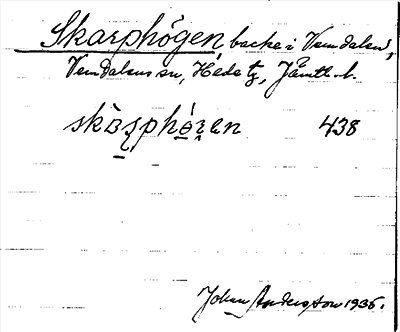 Skarphögen, backe i Vemdalen,
Vemdalens sn, Hede tg, Jämtl. l.
skàrphö́gen 438
Johan Andersson 1935.